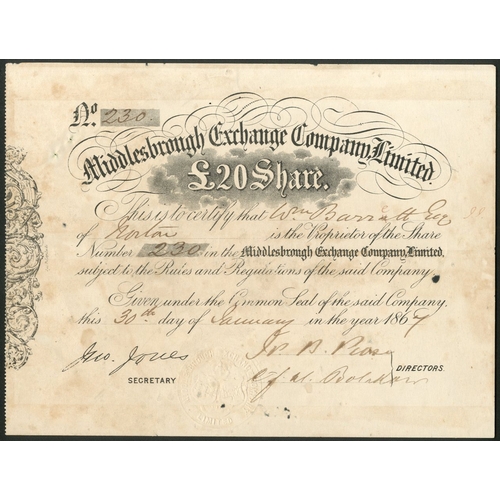 No. 230.
Middlesbrough Exchange Company, Limited.
£20 Share.
This is to certify that Wm. Barratt Esq
of Norton is the Proprietor of the Share
Number 230 in the Middlesbrough Exchange Company, Limited,
subject to the Rules and Regulations of the said Company.
Given under the Common Seal of the said Company,
this 30th day of January in the year 1867
Geo. Jones
SECRETARY
DIRECTORS.